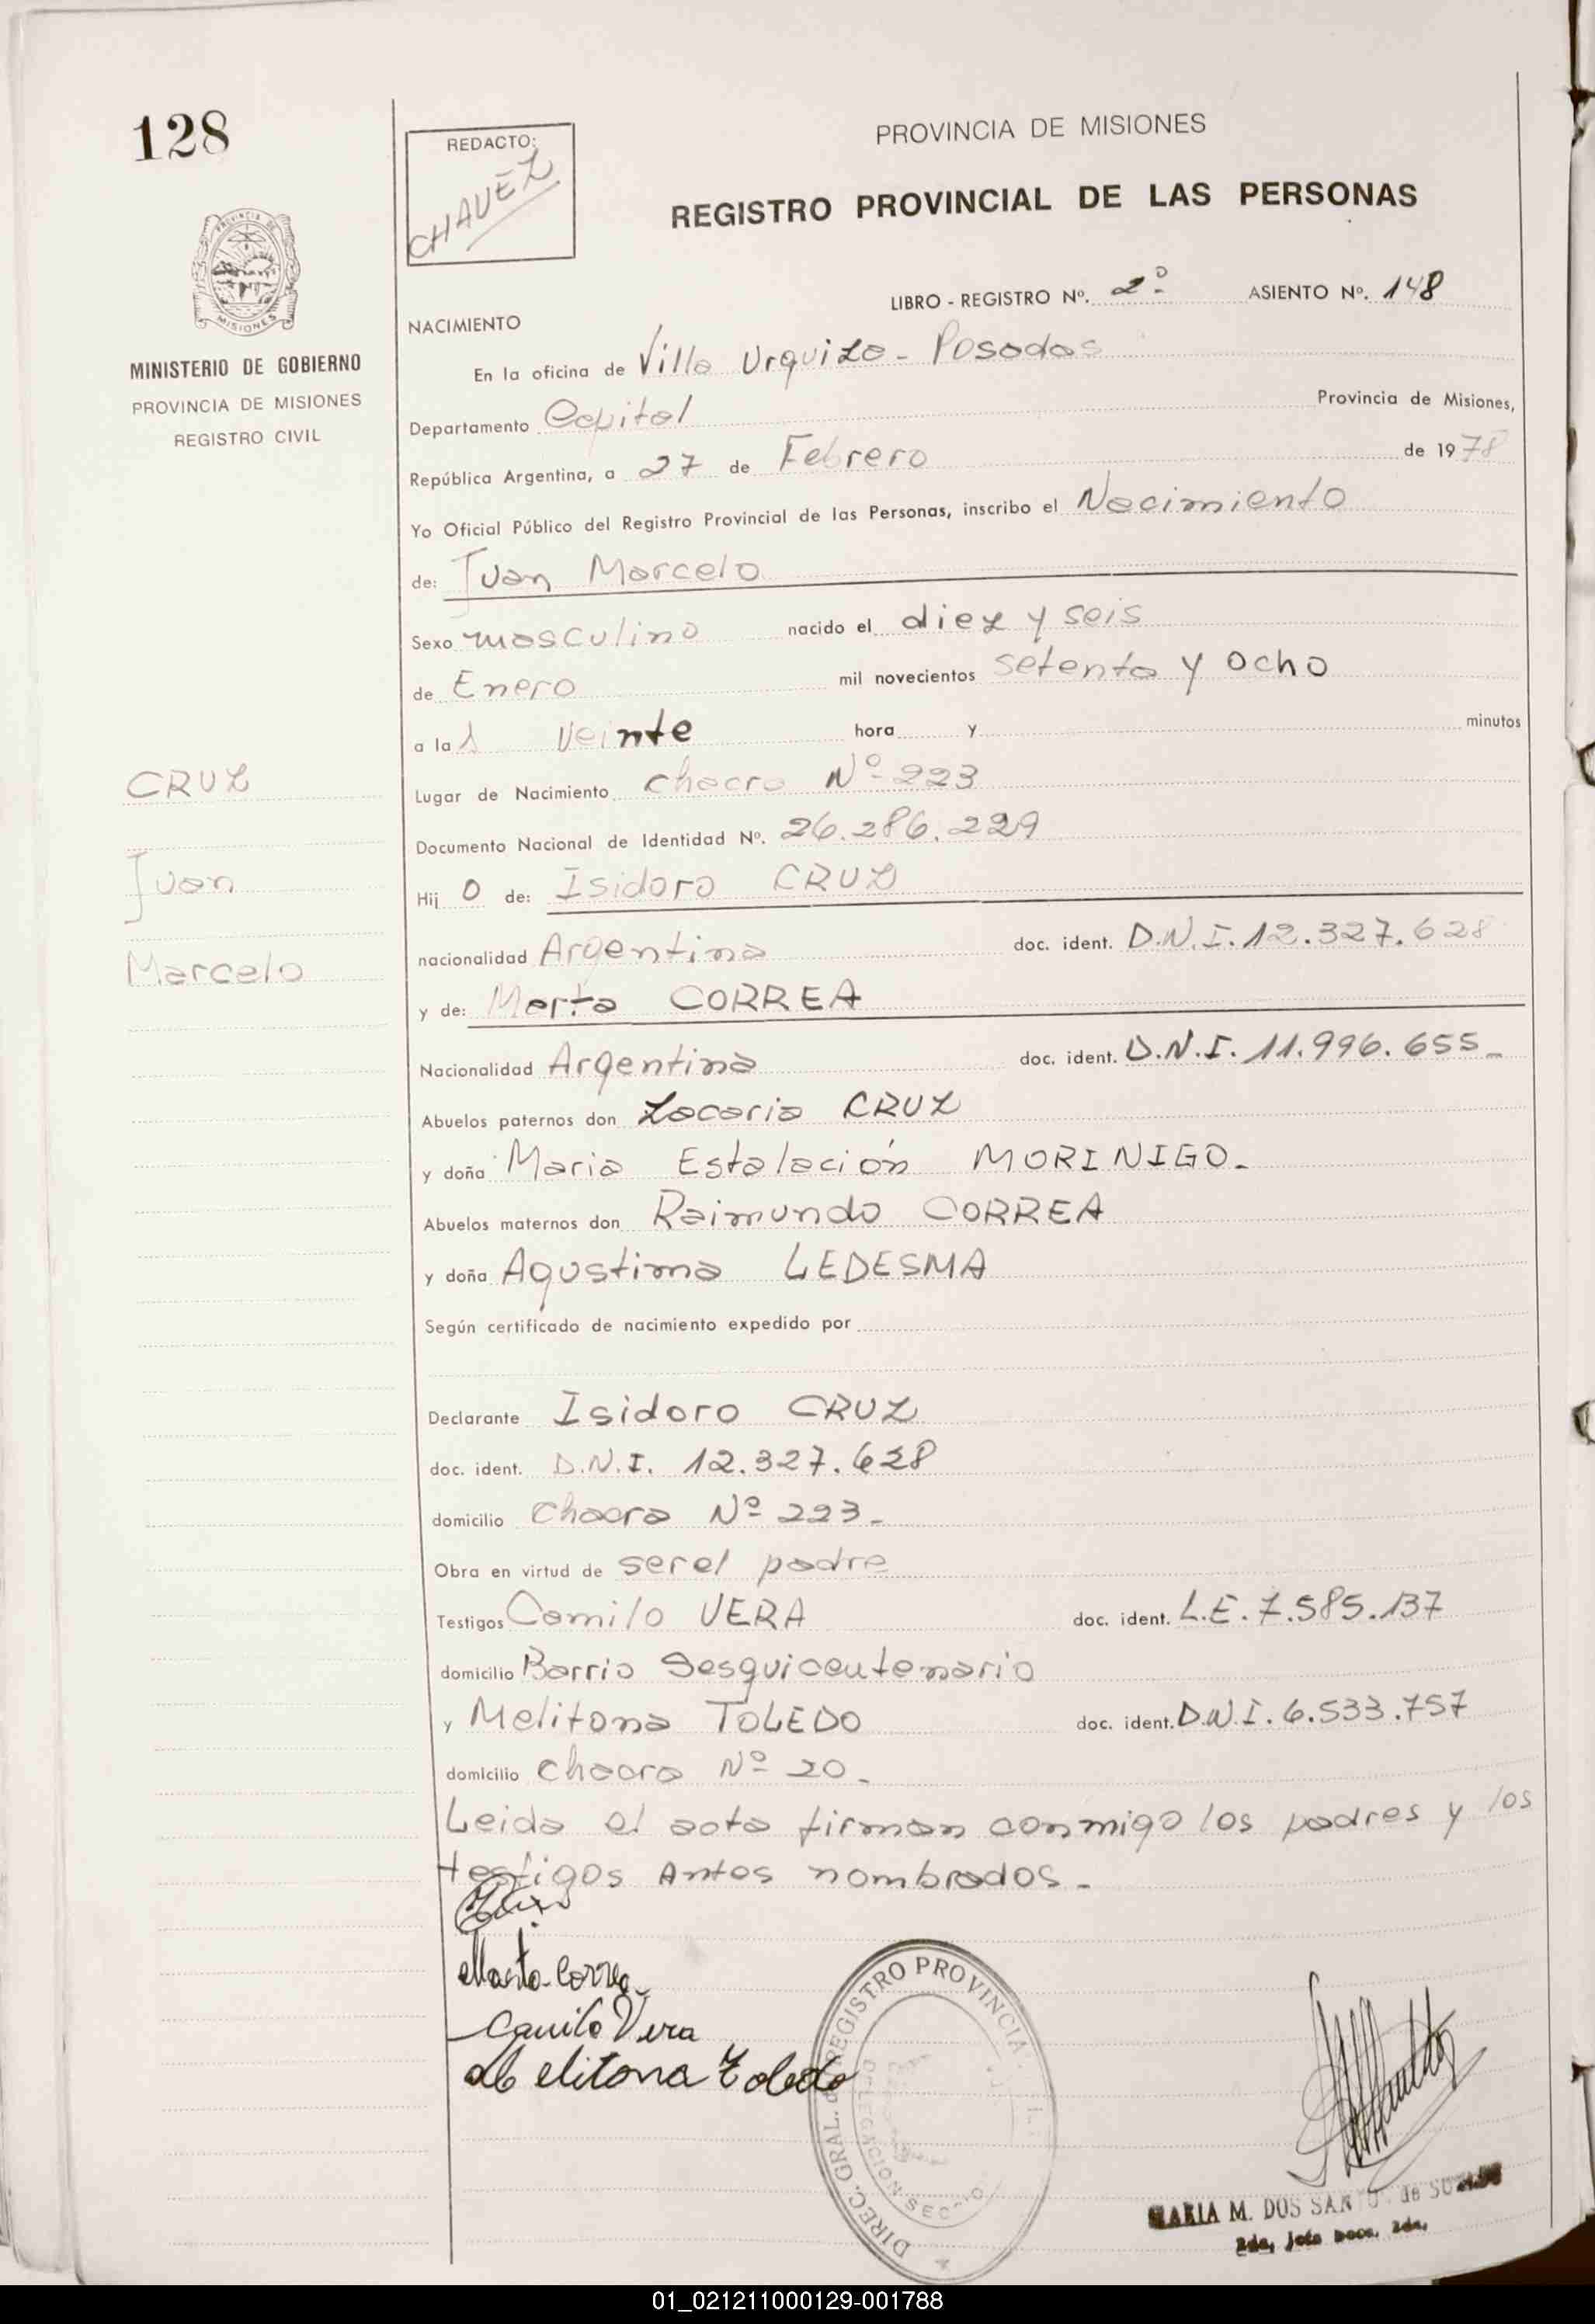 128
REDACTO:
CHAVEZ
PROVINCIA DE MISIONES
REGISTRO PROVINCIAL DE LAS PERSONAS
LIBRO - REGISTRO Nº. 2º ASIENTO Nº. 148
PROVINCIA DE
MISIONES
MINISTERIO DE GOBIERNO
PROVINCIA DE MISIONES
REGISTRO CIVIL
NACIMIENTO
En la oficina de Villa Urquiza - Posadas
Departamento Capital Provincia de Misiones,
República Argentina, a 27 de Febrero de 1978
Yo Oficial Público del Registro Provincial de las Personas, inscribo el Nacimiento
de: Juan Marcelo
Sexo masculino nacido el diez y seis
de Enero mil novecientos setenta y ocho
a las veinte hora y minutos
Lugar de Nacimiento chacra Nº 223
Documento Nacional de Identidad Nº. 26.286.229
Hij o de: Isidoro CRUZ
nacionalidad Argentina doc. ident. D.N.I. 12.327.628
y de: Marta CORREA
Nacionalidad Argentina doc. ident. D.N.I. 11.996.655-
Abuelos paternos don Zacaria CRUZ
y doña Maria Estalación MORINIGO-
Abuelos maternos don Raimundo CORREA
y doña Agustina LEDESMA
Según certificado de nacimiento expedido por
Declarante Isidoro CRUZ
doc. ident. D.N.I. 12.327.628
domicilio Chacra Nº 223-
Obra en virtud de ser el padre
Testigos Camilo VERA doc. ident. L.E. 7.585.137
domicilio Barrio Sesquicentenario
y Melitona TOLEDO doc. ident. D.N.I. 6.533.757
domicilio Chacra Nº 20-
Leida el acta firman conmigo los padres y los
testigos Antes nombrados-
CRUZ
Juan
Marcelo
Marta Correa
Camilo Vera
Melitona Toledo
DIREC. GRAL. REGISTRO PROVINCIAL
DELEGACION SECC
MARIA M. DOS SANTO de
2da. Jefa Secc. 2da.
01_021211000129-001788